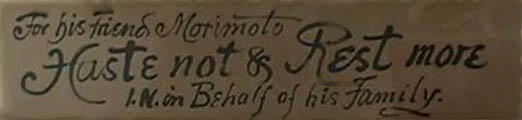 For his Friend Morimoto
Haste not & Rest more
I.N. in Behalf of his Family.